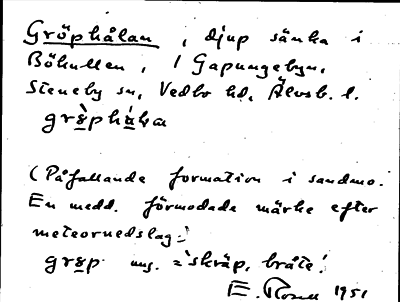 Gröphålan, djup sänka i
Böhullen, i Gapungebyn,
Steneby sn, Vedbo hd, Älvsb. l.
(Påfallande formation i sandmo.
En medd. förmodade märke efter
meteornedslag.
ung. = 'skräp, bråte'.
E. Rosell 1951